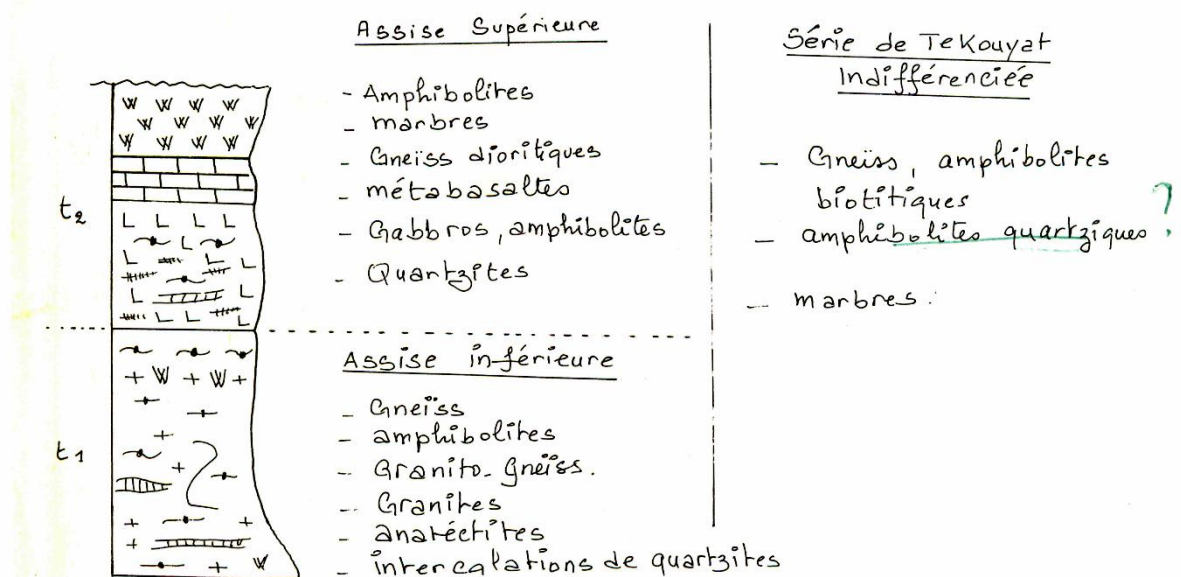 Assise Supérieure
- Amphibolites
- marbres
- Gneïss dioritiques
- métabasaltes
- Gabbros, amphibolites
- Quartzites
t2
Assise inférieure
- Gneïss
- amphibolites
- Granito-gneïss.
- Granites
- anatéctites
- intercalations de quartzites
t1
Série de Tekouyat
Indifférenciée
- Gneïss, amphibolites
biotitiques
- amphibolites quartziques ?
- marbres.